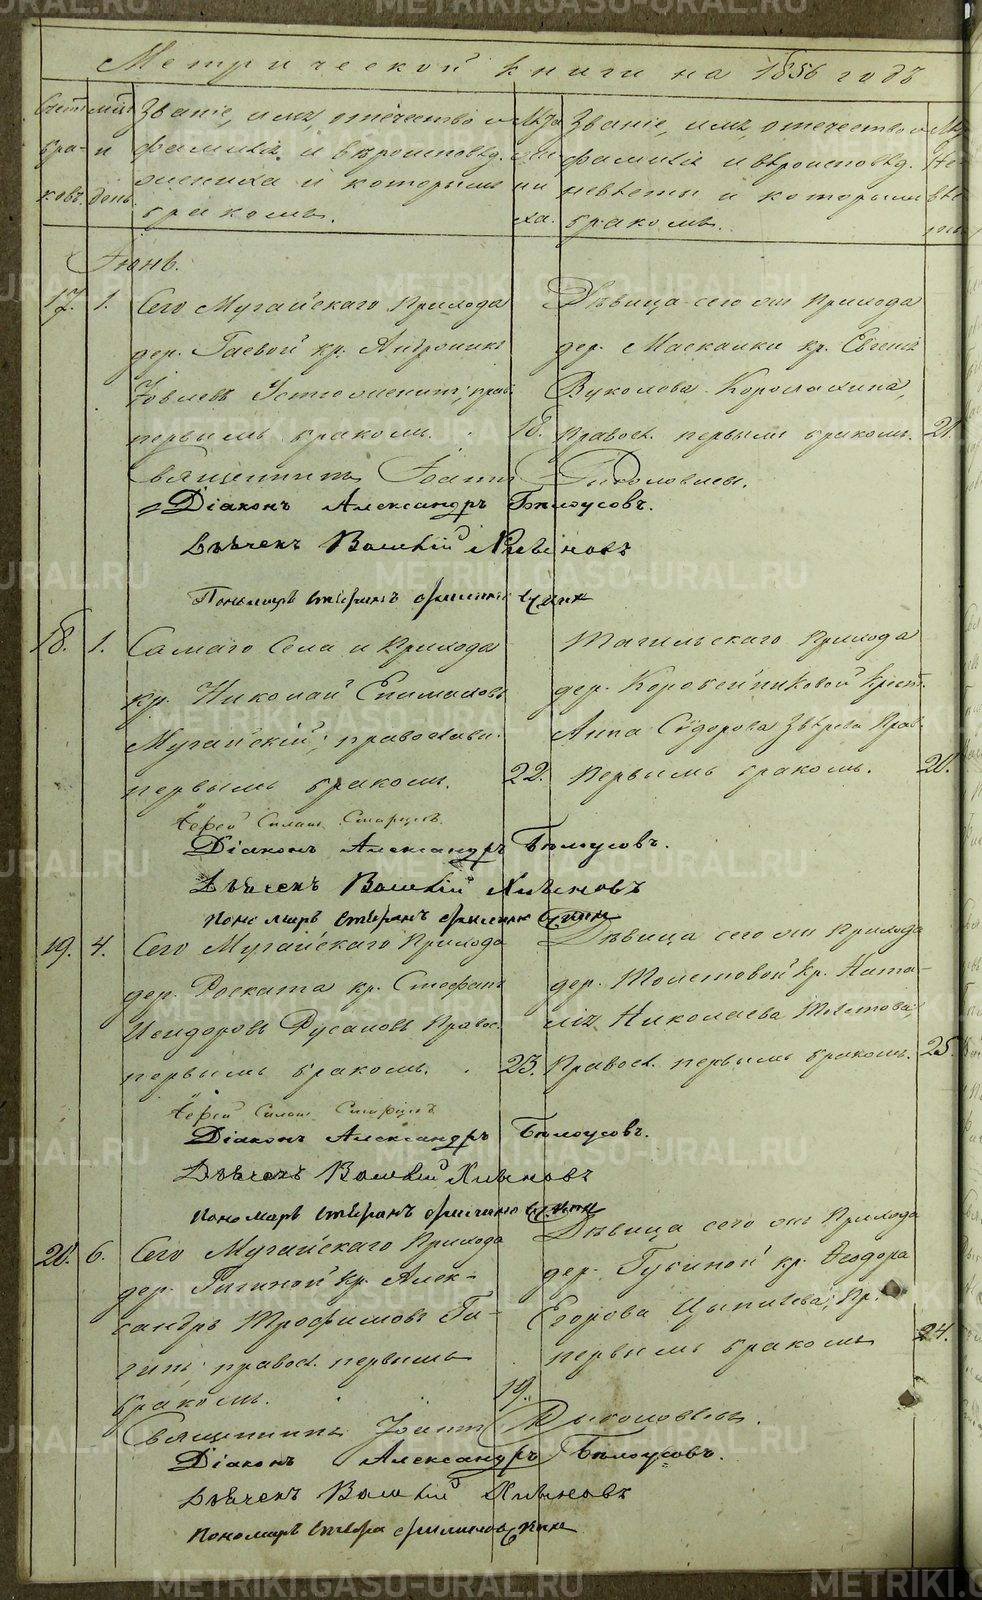 METRIKI.GASO-URAL.RU
Метрической книги на 1856 годъ
Счетъ бра-ковъ.
мцъ и день.
Званіе, имя, отечество и
фамилія и вѣроисповѣд.
жениха и которымъ
бракомъ.
Лѣта же ни ха.
Званіе, имя, отечество и
фамилія и вѣроисповѣд.
невѣсты и которымъ
бракомъ.
Лѣ не вѣс
Іюнь.
17. 1. Сего Мугайскаго Прихода
дер. Гаевой кр. Андроникъ
Іовлевъ Устюжанинъ, прав.
первымъ бракомъ. 18.
Дѣвица сего жъ Прихода
дер. Маскалки кр. Евгенія
Вуколова
Правосл. первымъ бракомъ. 21.
Священникъ Іоаннъ
Діаконъ Александръ Бѣлоусовъ.
Дьячекъ Василій
Пономарь Стефанъ
18. 1. Самаго Села и Прихода
кр. Николай Епимаховъ
Мугайскій, православн.
первымъ бракомъ. 22.
Тагильскаго Прихода
дер. Коробейниковой Крест.
Анна Сидорова Звѣрева Прав.
первымъ бракомъ. 20.
Іерей Старцевъ
Діаконъ Александръ Бѣлоусовъ.
Дьячекъ Василій
Пономарь Стефанъ
19. 4. Сего Мугайскаго Прихода
дер. Роската кр. Стефанъ
Исидоровъ Русаковъ Правос.
первымъ бракомъ. 23.
Дѣвица сего жъ Прихода
дер. Толстовой кр. Ната-
лія Николаева Толстова,
Правосл. первымъ бракомъ. 25.
Іерей Старцевъ
Діаконъ Александръ Бѣлоусовъ.
Дьячекъ Василій
Пономарь Стефанъ
20. 6. Сего Мугайскаго Прихода
дер. Гигиной кр. Алек-
сандръ Трофимовъ Ги-
гинъ, правосл. первымъ
бракомъ. 19.
Дѣвица сего жъ Прихода
дер. Губиной кр. Ѳеодора
Егорова Цыпилева, Пр.
первымъ бракомъ 24.
Священникъ Іоаннъ
Діаконъ Александръ Бѣлоусовъ.
Дьячекъ Василій
Пономарь